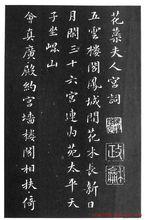 花蘂夫人宮詞
五雲樓閣鳳城間花木長新日
月閑三十六宮連內苑太平天
子坐崐山
會真廣殿約宮墻樓閣相扶倚